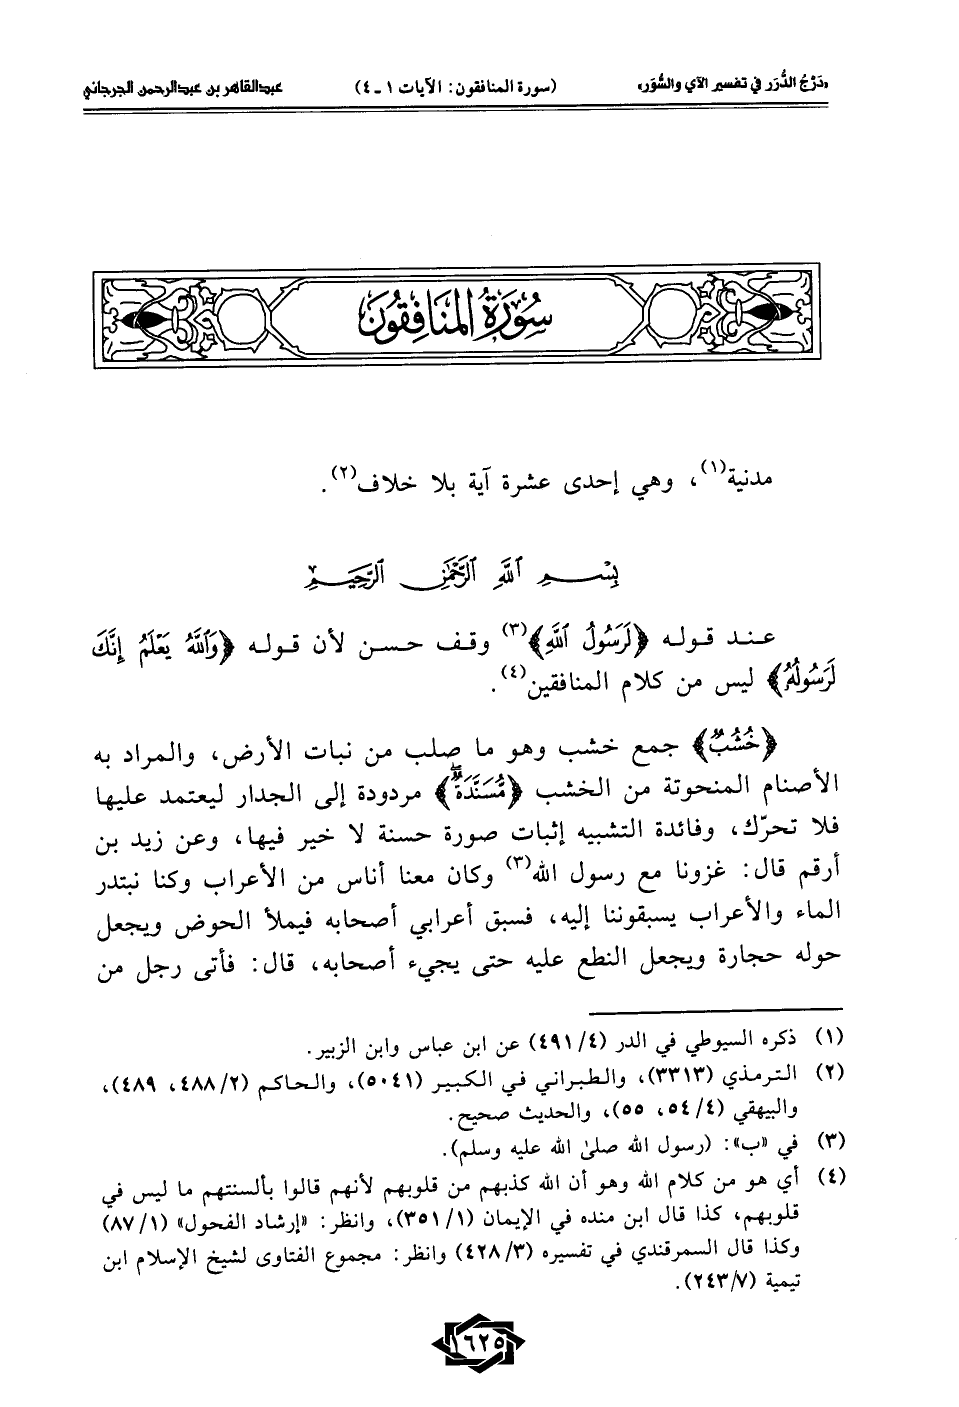 «دَرْجُ الدُّرَر في تفسير الآي والسُّوَر» (سورة المنافقون: الآيات ١ ـ ٤) عبدالقاهر بن عبدالرحمن الجرجاني
سُورَةُ المنَافِقُون
مدنية(١)، وهي إحدى عشرة آية بلا خلاف(٢).
بِسْمِ اللَّهِ الرَّحْمَٰنِ الرَّحِيمِ
عند قوله ﴿لَرَسُولُ اللَّهِ﴾(٣) وقف حسن لأن قوله ﴿وَاللَّهُ يَعْلَمُ إِنَّكَ
لَرَسُولُهُ﴾ ليس من كلام المنافقين(٤).
﴿خُشُبٌ﴾ جمع خشب وهو ما صلب من نبات الأرض، والمراد به
الأصنام المنحوتة من الخشب ﴿مُّسَنَّدَةٌ﴾ مردودة إلى الجدار ليعتمد عليها
فلا تحرّك، وفائدة التشبيه إثبات صورة حسنة لا خير فيها، وعن زيد بن
أرقم قال: غزونا مع رسول الله(٣) وكان معنا أناس من الأعراب وكنا نبتدر
الماء والأعراب يسبقوننا إليه، فسبق أعرابي أصحابه فيملأ الحوض ويجعل
حوله حجارة ويجعل النطع عليه حتى يجيء أصحابه، قال: فأتى رجل من
(١) ذكره السيوطي في الدر (٤/٤٩١) عن ابن عباس وابن الزبير.
(٢) الترمذي (٣٣١٣)، والطبراني في الكبير (٥٠٤١)، والحاكم (٢/٤٨٨، ٤٨٩)،
والبيهقي (٤/٥٤، ٥٥)، والحديث صحيح.
(٣) في «ب»: (رسول الله صلىٰ الله عليه وسلم).
(٤) أي هو من كلام الله وهو أن الله كذبهم من قلوبهم لأنهم قالوا بألسنتهم ما ليس في
قلوبهم، كذا قال ابن منده في الإيمان (١/٣٥١)، وانظر: «إرشاد الفحول» (١/٨٧)
وكذا قال السمرقندي في تفسيره (٣/٤٢٨) وانظر: مجموع الفتاوى لشيخ الإسلام ابن
تيمية (٧/٢٤٣).
١٦٢٥